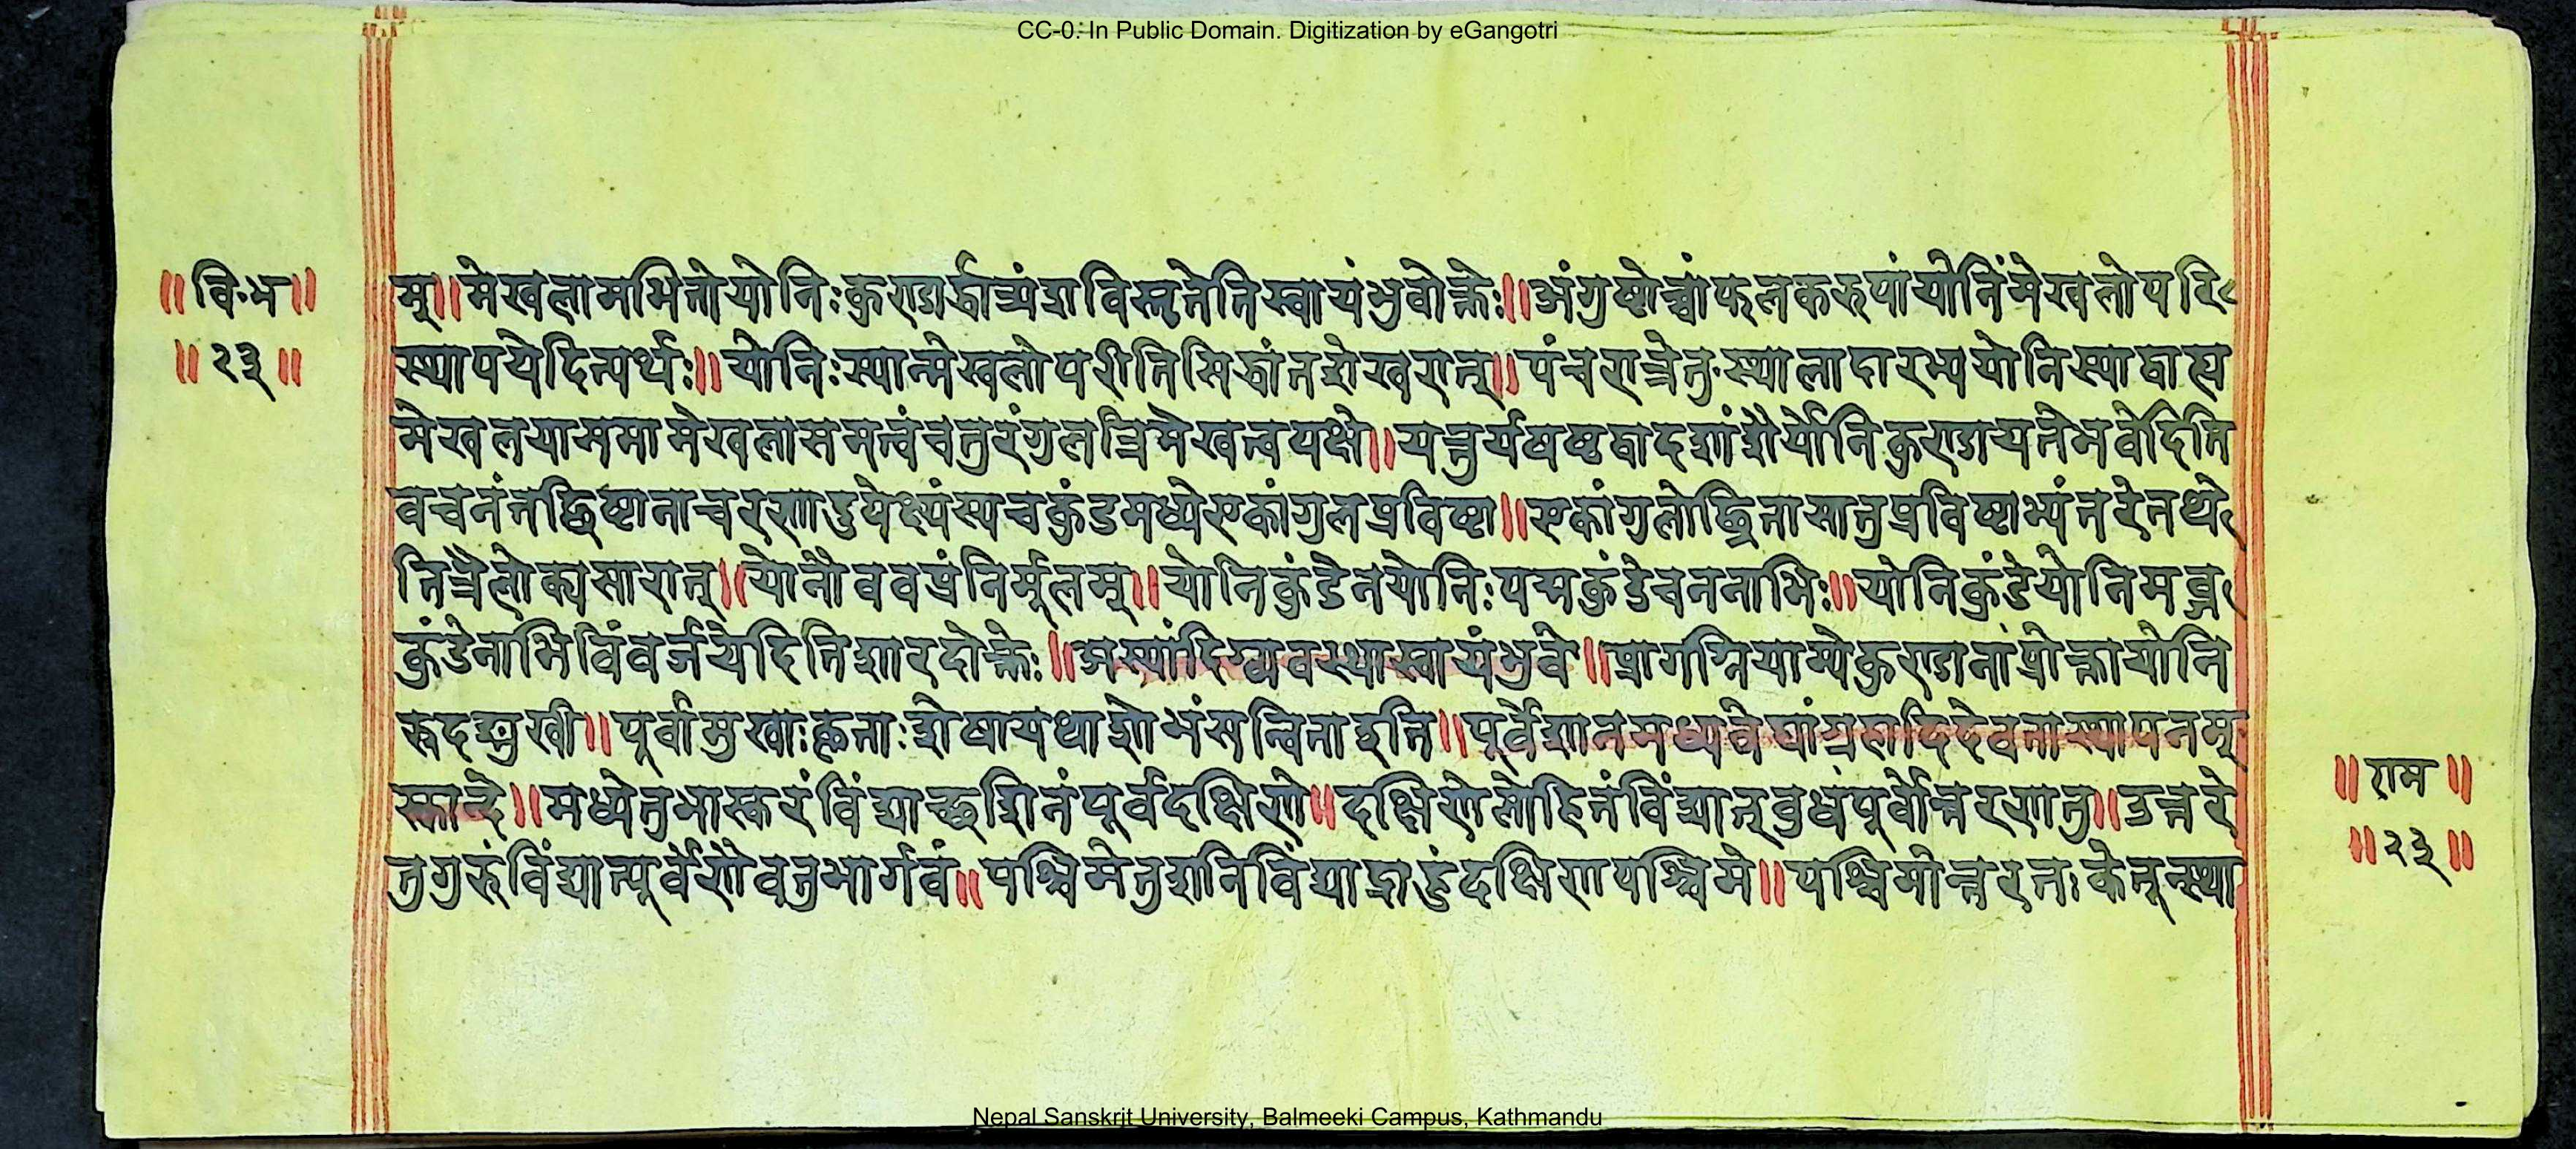 CC-0. In Public Domain. Digitization by eGangotri
॥वि॰भ॥
॥२३॥
म्॥मेखलामभितोयोनिःकुण्डार्द्धात्र्यंशविस्तृतेतिस्वायंभुवोक्तेः॥अंगुष्टोच्चांफलकरुपांयोनिंमेखलोपरि
स्थापयेदित्यर्थः॥योनिःस्यान्मेखलोपरीतिसिद्धांतशेखरात्॥पंचरात्रेतु॰स्थालादारभ्ययोनिस्याद्वाह्य
मेखलयासममामेखलासमत्वंचतुरंगुलत्रिमेखत्वपक्षे॥यत्तुर्यषष्टद्वादशांशैर्योनिकुण्डायतेभवेदिति
वचनंतद्धिष्टानाचरणाद्रुपेक्ष्यंस्पचकुंडमध्येएकांगुलप्रविष्टा॥एकांगुलोछ्रितासातुप्रविष्टाभ्यंतरेतथे
तित्रैलोक्यसारात्॥योनौववप्रंनिर्मूलम्॥योनिकुंडेनयोनिःपद्मकुंडेचननाभिः॥योनिकुंडेयोनिमब्ज
कुंडेनाभिविंवर्जयेदितिशारदोक्तेः॥अस्यांदिग्व्यवस्थास्वायंभुवे॥प्रागग्नियाम्येकुण्डानांप्रोक्तायोनि
रूदङ्मुखी॥पूर्वामुखाःकृताःशेषायथाशोभंसन्विताइति॥पूर्वेशानमध्यवेद्यांग्रहादिदेवतास्थापनम्
स्कान्दे॥मध्येतुभास्करंविंद्याच्छशिनंपूर्वदक्षिणे॥दक्षिणेलोहितंविंद्यात्बुधंपूर्वोत्तरणतु॥उत्तरे
तुगुरुंविंद्यात्पूर्वेणैवतुभार्गवं॥पश्चिमेतुशनिविंद्याद्राहुंदक्षिणपश्चिमे॥पश्चिमोत्तरतःकेतून्स्था
॥राम॥
॥२३॥
Nepal Sanskrit University, Balmeeki Campus, Kathmandu